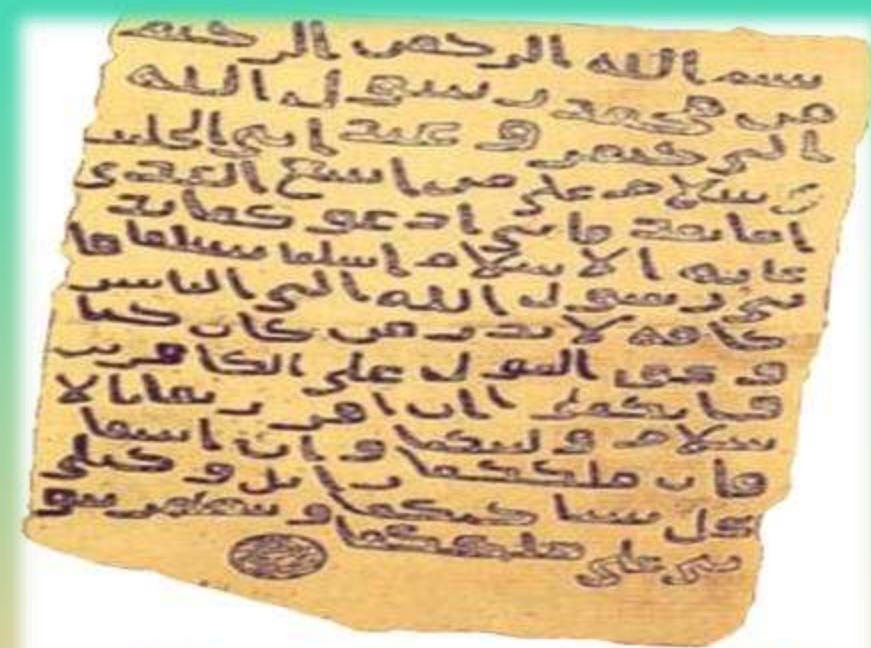 بسم الله الرحمن الرحيم
من محمد رسول الله
الى جيفر و عبد ابني الجلند
سلام على من اتبع الهدى
اما بعد فاني ادعوكما بد
عايه الاسلام اسلما تسلما فا
ني رسول الله الى الناس
كافه لانذر من كان حيا
و يحق القول على الكافرين
فانكما ان اقر رتما بالا
سلام وليتكما وان ابيتما
فان ملككما زائل و خيلي
تحل بساحتكما و تظهر نبو
تي على ملككما